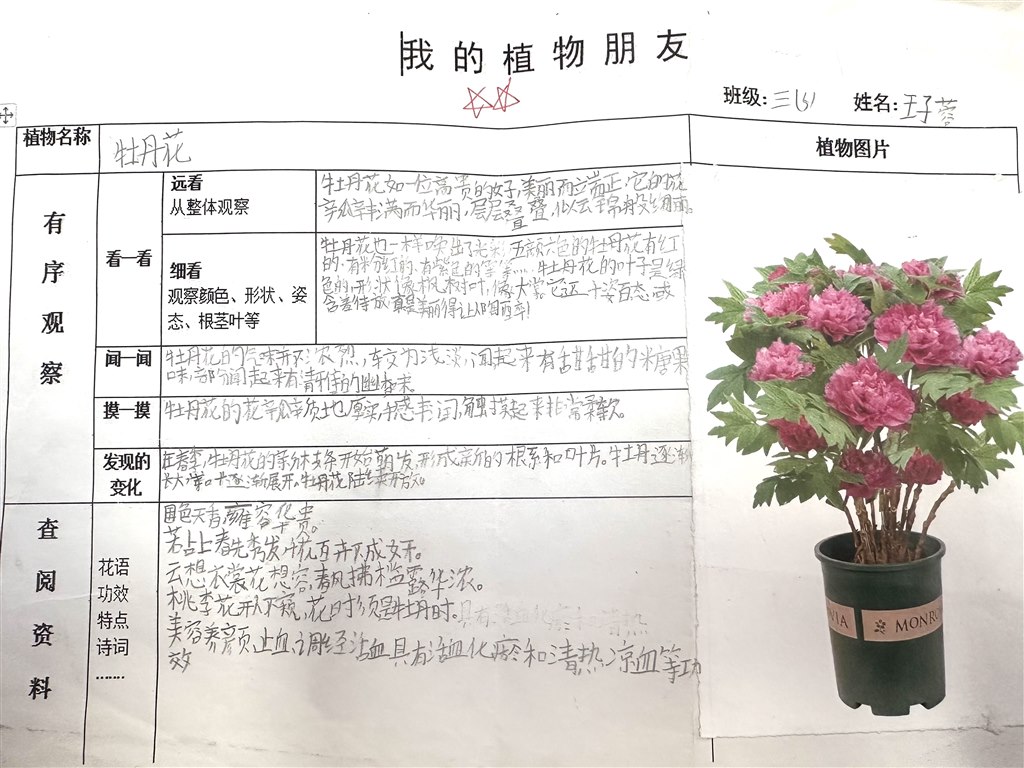 我的植物朋友
班级:三(5) 姓名:王子蓉
植物名称
牡丹花
植物图片
有序观察
看一看
远看
从整体观察
牡丹花如一位高贵的女子,美丽而立端正,它的花
瓣丰满而华丽,层层叠叠,似云锦般绚丽。
细看
观察颜色、形状、姿
态、根茎叶等
牡丹花也一样唤出光彩,五颜六色的牡丹花有红
的,有粉红的,有紫色的等等……牡丹花的叶子是绿
色的,形状像枫树叶,像大掌。它这十姿百态,或
含羞待放,真是美丽得让人陶醉!
闻一闻
牡丹花的气味并不浓烈,较为浅淡,闻起来有甜甜的糖果
味,部分闻起来有清佳的幽香味。
摸一摸
牡丹花的花瓣质地厚实,手感书润,触摸起来非常柔软。
发现的
变化
在春季,牡丹花的茶 枝条开始萌发,形成新的根系和叶片。牡丹逐渐
长大,掌叶逐渐展开,牡丹花陆续开放。
查阅资料
花语
功效
特点
诗词
……
国色天香,雍容华贵。
若占上春先秀发,千花百卉不成妖。
云想衣裳花想容,春风拂槛露华浓。
桃李花开人不窥,花时须是牡丹时。
美容养颜,止血,调经活血具有活血化瘀和清热凉血等功
效
NIA
MONRO